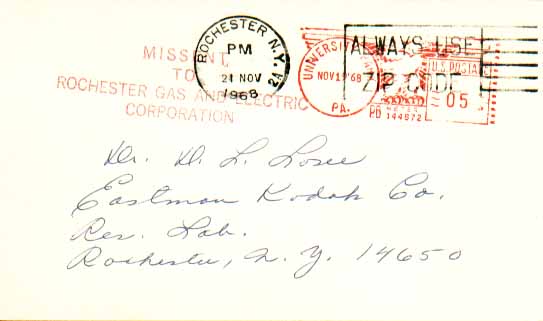 MISSENT
TO
ROCHESTER GAS AND ELECTRIC
CORPORATION
ROCHESTER N.Y.
PM
21 NOV
1968
2A
UNIVERSITY
NOV 19 '68
PA.
ALWAYS USE
ZIP CODE
U.S. POSTAGE
05
PB
METER
144872
Dr. D. L. Losee
Eastman Kodak Co.
Res. Lab.
Rochester, N. Y. 14650